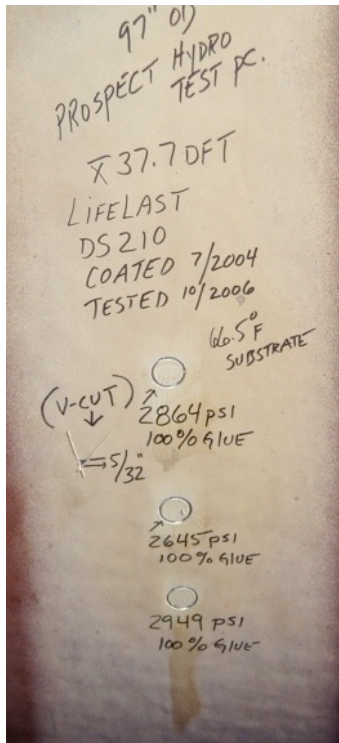 97" OD
PROSPECT HYDRO
TEST PC.
X̄ 37.7 DFT
LIFELAST
DS210
COATED 7/2004
TESTED 10/2006
66.5°F
SUBSTRATE
(V-CUT)
5/32"
2864 psi
100% GLUE
2645 PSI
100% GLUE
2949 PSI
100% GLUE